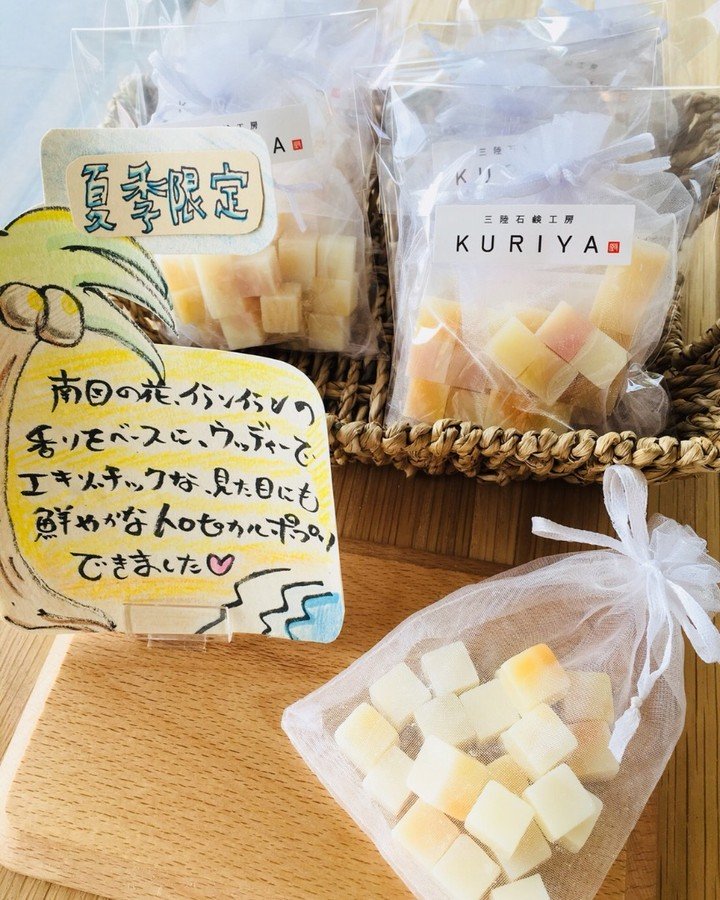 夏季限定
南国の花、イランイランの
香りをベースに、ウッディーで
エキゾチックな、見た目にも
鮮やかなトロピカルポプリ
できました♡
工房
A
三陸
KU
三陸石鹸工房
KURIYA